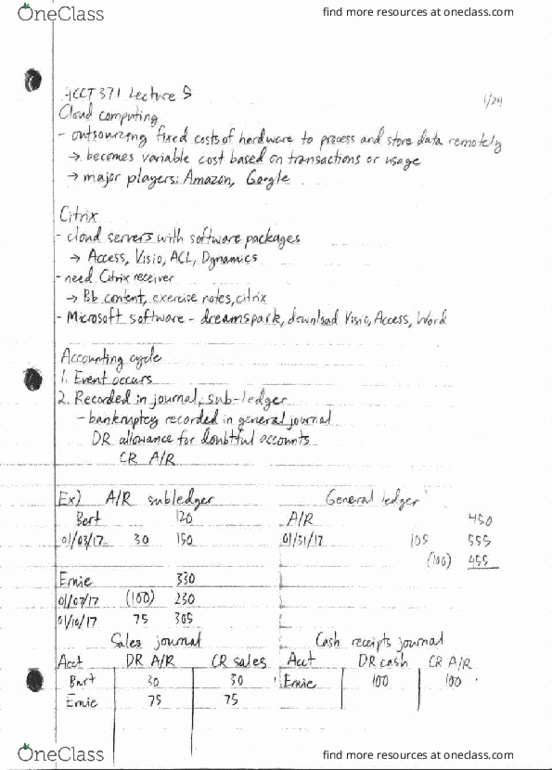 OneClass find more resources at oneclass.com
ACCT 371 Lecture 5 1/24
Cloud computing
- outsourcing fixed costs of hardware to process and store data remotely
→ becomes variable cost based on transactions or usage
→ major players: Amazon, Google
Citrix
- cloud servers with software packages
→ Access, Visio, ACL, Dynamics
- need Citrix receiver
→ Bb content, exercise notes, citrix
- Microsoft software - dreamspark, download Visio, Access, Word
Accounting cycle
1. Event occurs
2. Recorded in journal, sub-ledger
- bankruptcy recorded in general journal
DR allowance for doubtful accounts
CR A/R
Ex) A/R subledger General ledger
Bert 120 A/R 450
01/03/17 30 150 01/31/17 105 555
(100) 455
Ernie 330
01/07/17 (100) 230
01/10/17 75 305
Sales journal Cash receipts journal
Acct DR A/R CR sales Acct DR cash CR A/R
Bert 30 30 Ernie 100 100
Ernie 75 75
OneClass find more resources at oneclass.com